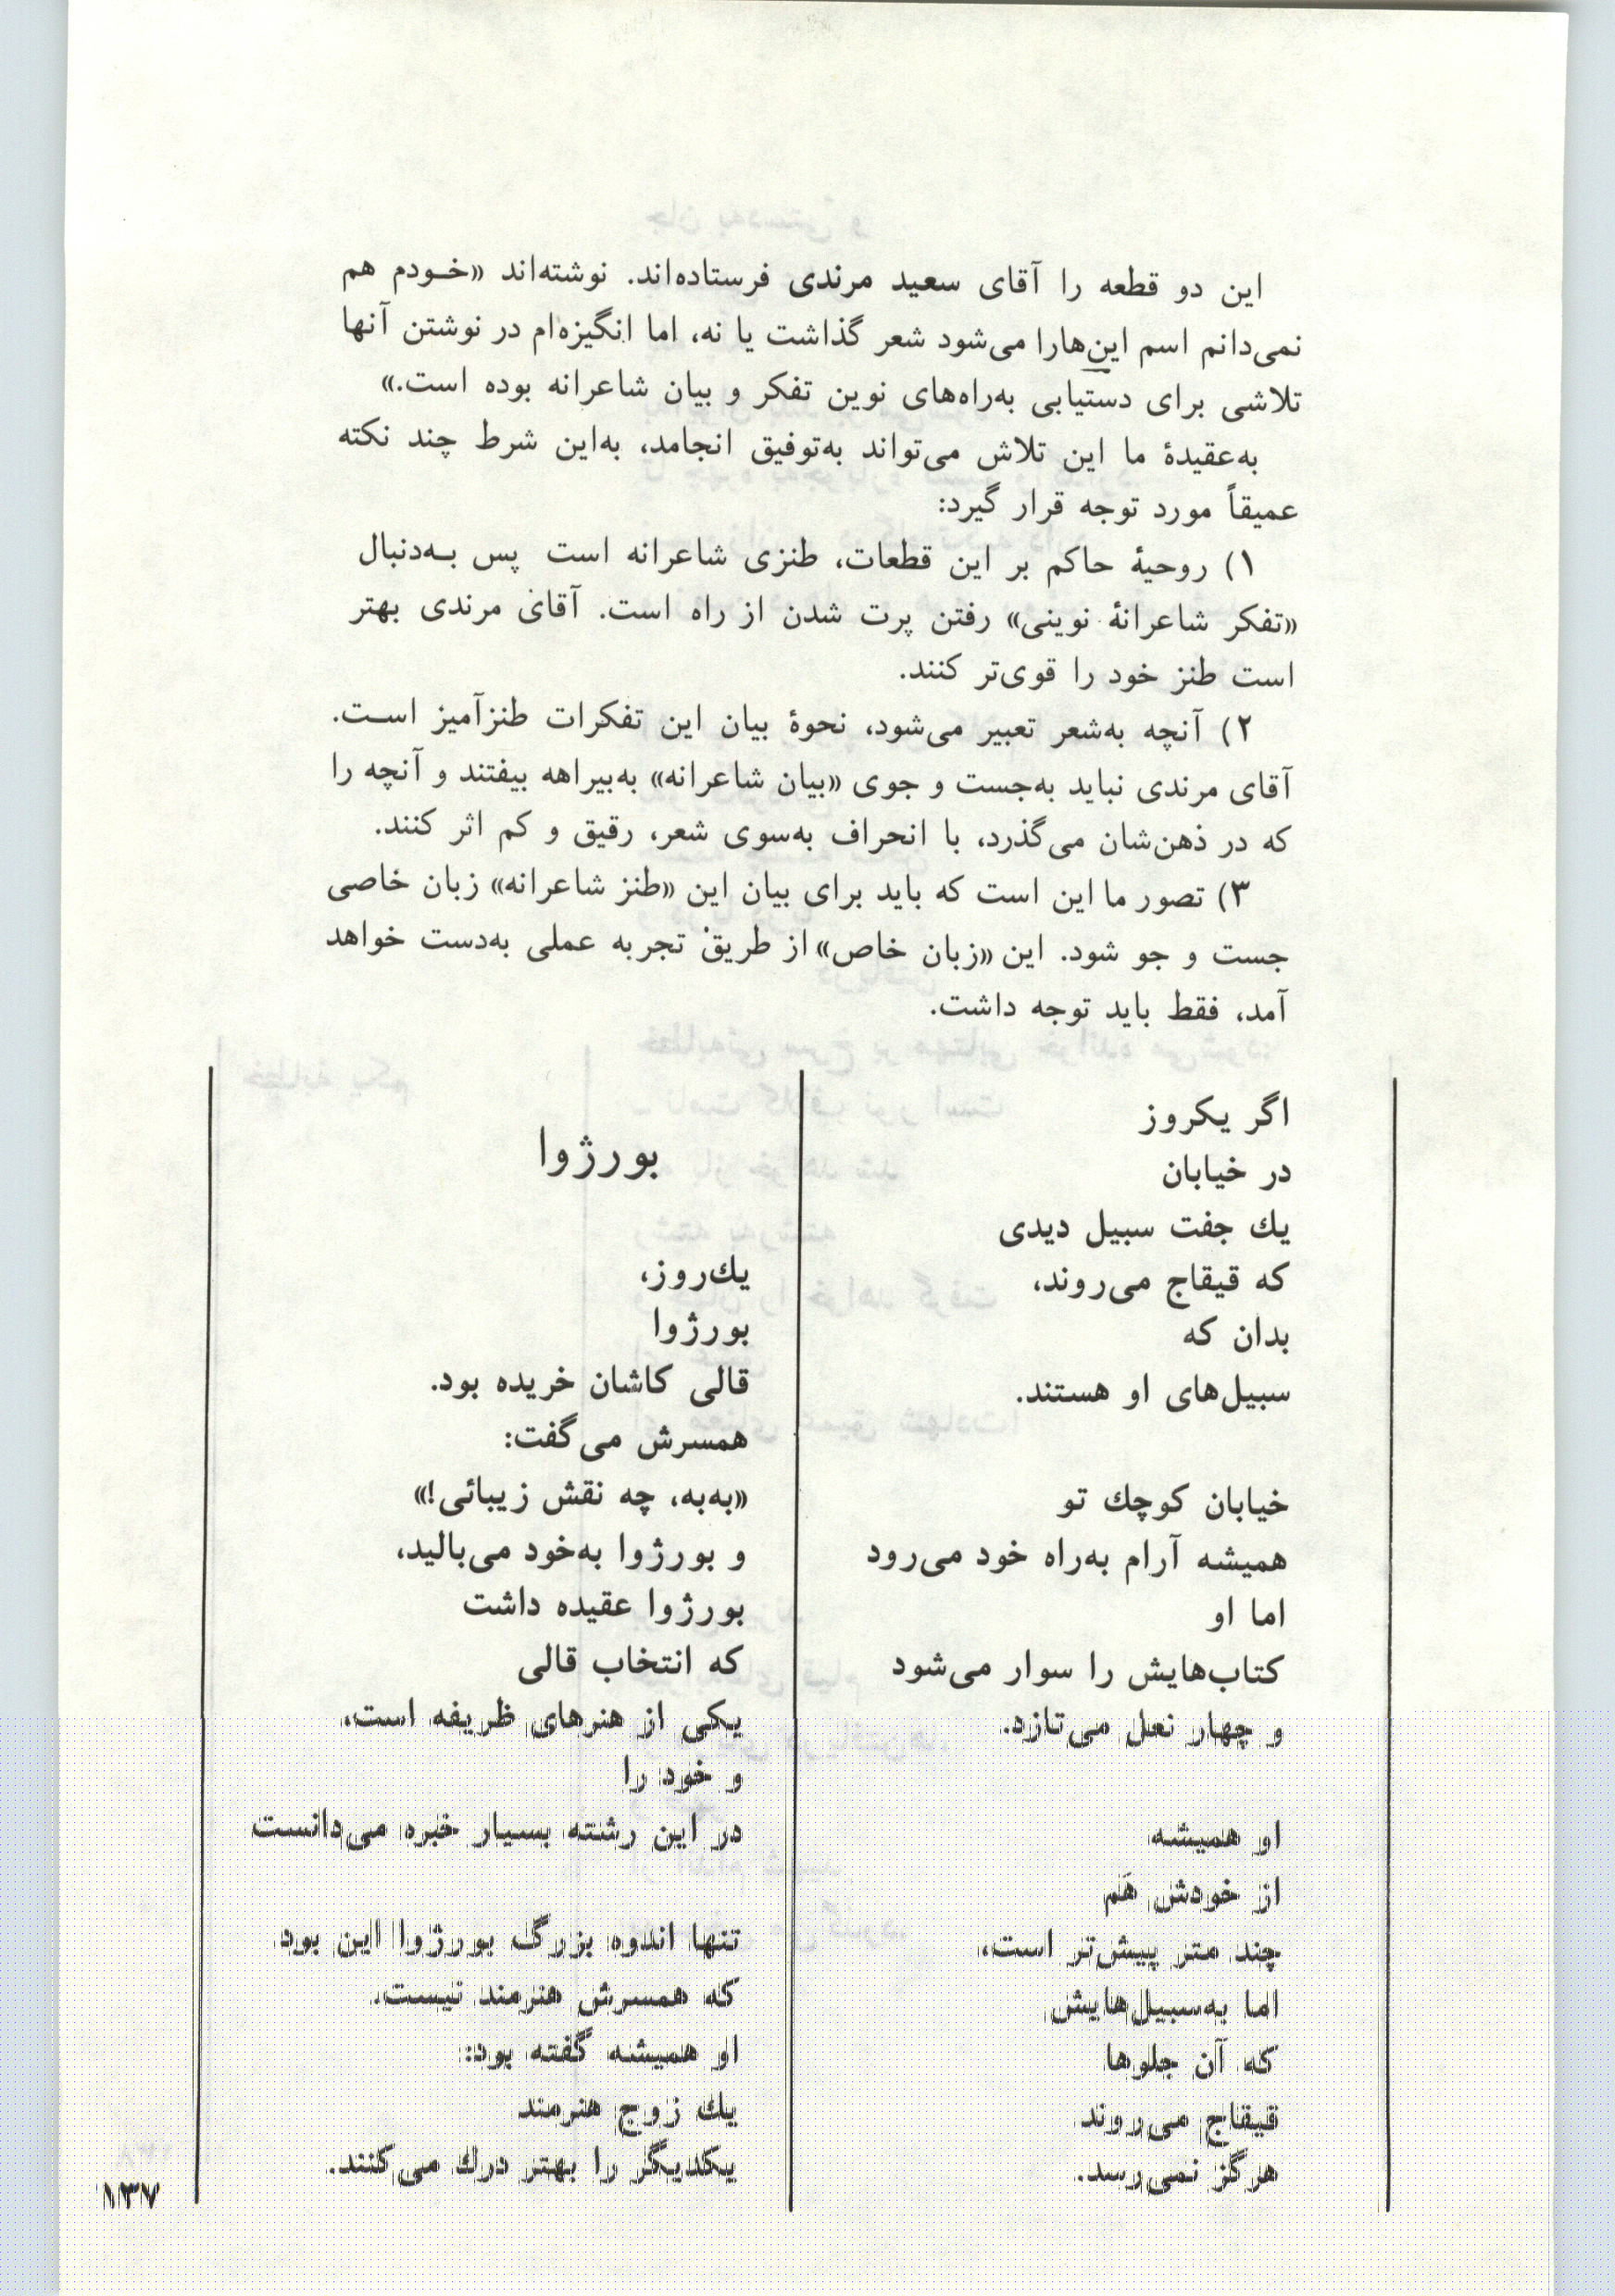 این دو قطعه را آقای سعید مرندی فرستاده‌اند. نوشته‌اند «خـودم هم
نمی‌دانم اسم این‌هارا می‌شود شعر گذاشت یا نه، اما انگیزه‌ام در نوشتن آنها
تلاشی برای دستیابی به‌راه‌های نوین تفکر و بیان شاعرانه بوده است.»
به‌عقیدهٔ ما این تلاش می‌تواند به‌توفیق انجامد، به‌این شرط چند نکته
عمیقاً مورد توجه قرار گیرد:
۱) روحیهٔ حاکم بر این قطعات، طنزی شاعرانه است پس بـه‌دنبال
«تفکر شاعرانهٔ نوینی» رفتن پرت شدن از راه است. آقای مرندی بهتر
است طنز خود را قوی‌تر کنند.
۲) آنچه به‌شعر تعبیر می‌شود، نحوهٔ بیان این تفکرات طنزآمیز اسـت.
آقای مرندی نباید به‌جست و جوی «بیان شاعرانه» به‌بیراهه بیفتند و آنچه را
که در ذهن‌شان می‌گذرد، با انحراف به‌سوی شعر، رقیق و کم اثر کنند.
۳) تصور ما این است که باید برای بیان این «طنز شاعرانه» زبان خاصی
جست و جو شود. این «زبان خاص» از طریق تجربه عملی به‌دست خواهد
آمد، فقط باید توجه داشت.
اگر یکروز
در خیابان
یك جفت سبیل دیدی
که قیقاج می‌روند،
بدان که
سبیل‌های او هستند.
خیابان کوچك تو
همیشه آرام به‌راه خود می‌رود
اما او
کتاب‌هایش را سوار می‌شود
و چهار نعل می‌تازد.
او همیشه
از خودش هَم
چند متر پیش‌تر است،
اما به‌سبیل‌هایش
که آن جلوها
قیقاج می‌روند
هرگز نمی‌رسد.
بورژوا
یك‌روز،
بورژوا
قالی کاشان خریده بود.
همسرش می‌گفت:
«به‌به، چه نقش زیبائی!»
و بورژوا به‌خود می‌بالید،
بورژوا عقیده داشت
که انتخاب قالی
یکی از هنرهای ظریفه است،
و خود را
در این رشته بسیار خبره می‌دانست
تنها اندوه بزرگ بورژوا این بود
که همسرش هنرمند نیست.
او همیشه گفته بود:
یك زوج هنرمند
یکدیگر را بهتر درك می‌کنند.
۱۳۷